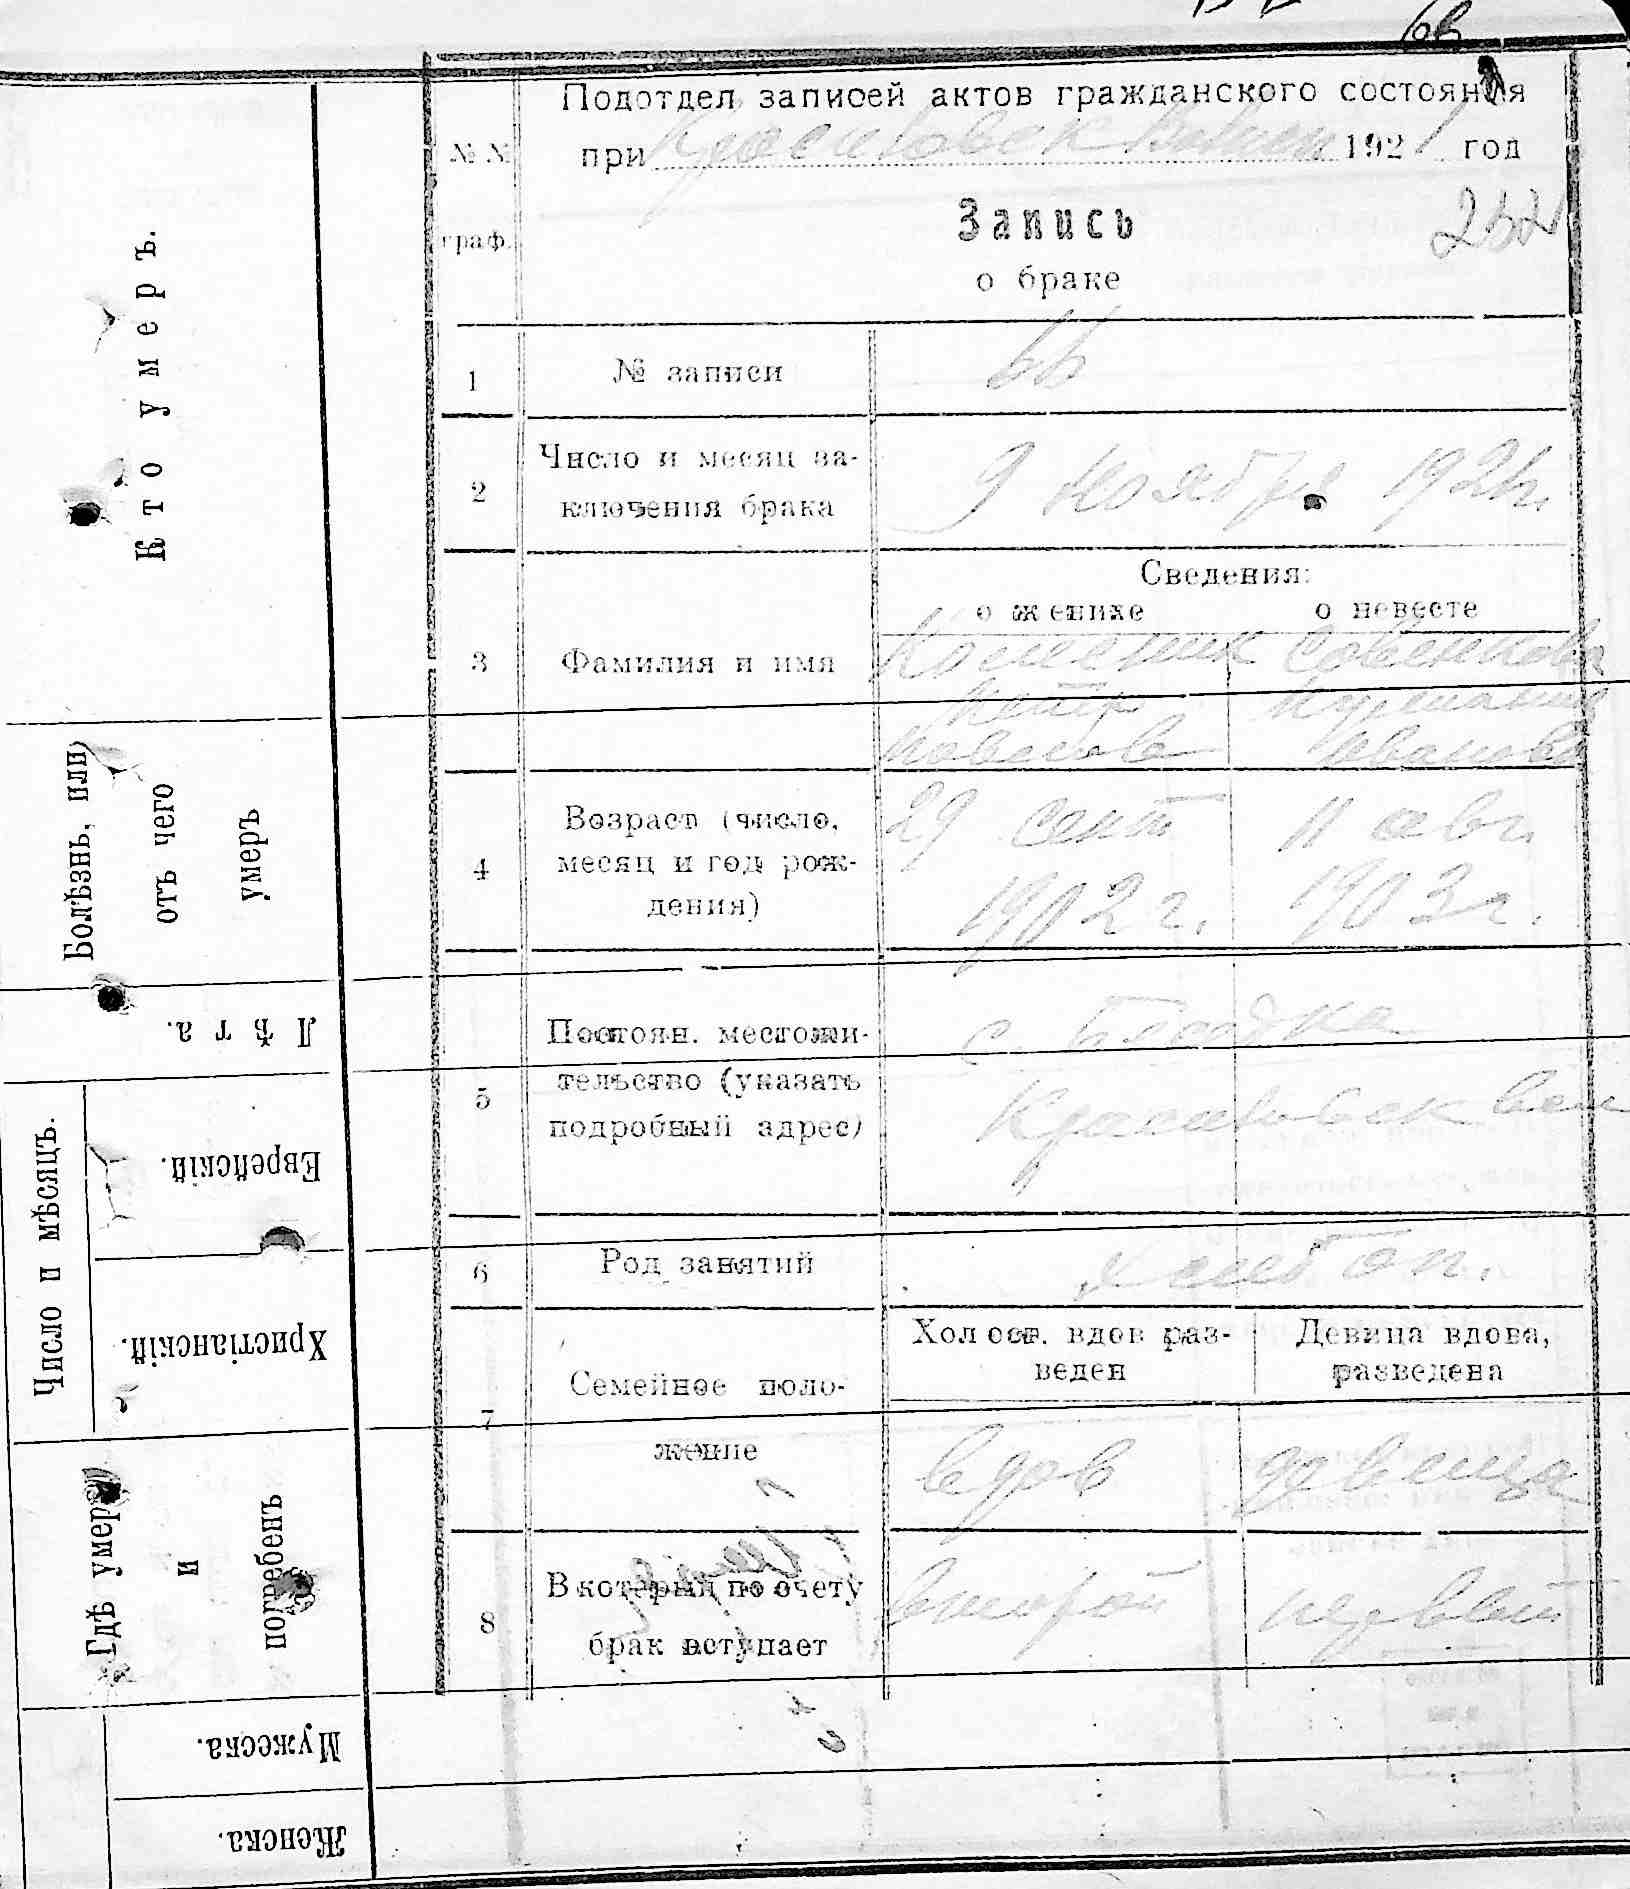 66
Подотдел записей актов гражданского состояния
№ № при 1921 год
Запись
граф.
о браке
1 № записи 66
2 Число и месяц за-
ключения брака
9 Ноября 1921г.
Сведения:
о женихе о невесте
3 Фамилия и имя
Совенкова
Петр
Иванова
4 Возраст (число,
месяц и год рож-
дения)
29 сент 11 авг.
1902 г. 1903 г.
5 Постоян. местожи-
тельство (указать
подробный адрес)
с.
6 Род занятий хлебоп.
7 Семейное поло-
жение
Холост. вдов раз-
веден
Девица вдова,
разведена
вдов девица
8 В который по счету
брак вступает
второй первый
Кто умеръ.
Болѣзнь, или
отъ чего
умеръ
Лѣта.
Число и мѣсяцъ.
Еврейскій.
Христіанскій.
Гдѣ умеръ
и
погребенъ
Мужеска.
Женска.